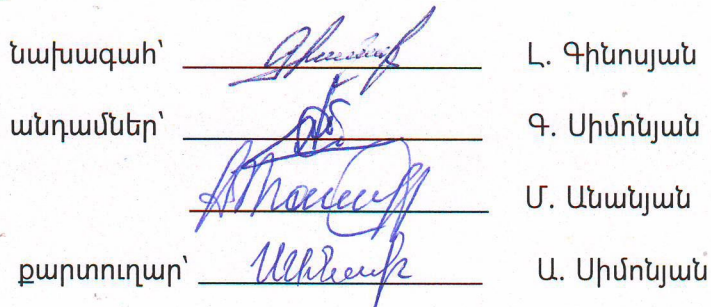 նախագահ՝ Լ. Գինոսյան
անդամներ՝ Գ. Սիմոնյան
Մ. Անանյան
քարտուղար՝ Ա. Սիմոնյան